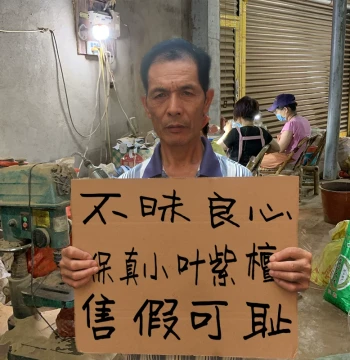 不昧良心
保真小叶紫檀
售假可耻